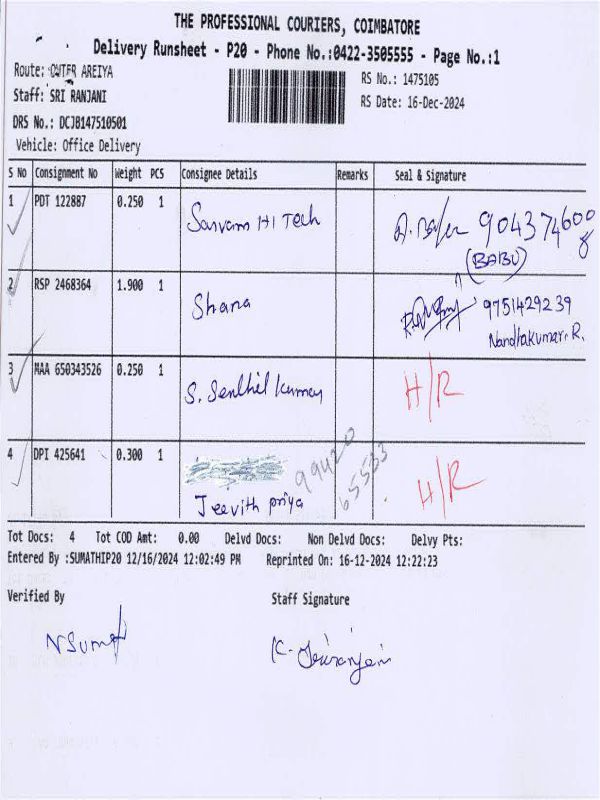 THE PROFESSIONAL COURIERS, COIMBATORE
Delivery Runsheet - P20 - Phone No.:0422-3505555 - Page No.:1
Route: OUTER AREIYA
RS No.: 1475105
Staff: SRI RANJANI
RS Date: 16-Dec-2024
DRS No.: DCJB147510501
Vehicle: Office Delivery
S No Consignment No Weight PCS Consignee Details Remarks Seal & Signature
1 PDT 122887 0.250 1 Sarvam Hi Tech
(BABU)
2 RSP 2468364 1.900 1 Shana 9751429239
Nandhakumar. R.
3 MAA 650343526 0.250 1 S. Senthil Kumar H/R
4 DPI 425641 0.300 1 99420
65533
Jeevith priya H/R
Tot Docs: 4 Tot COD Amt: 0.00 Delvd Docs: Non Delvd Docs: Delvy Pts:
Entered By :SUMATHIP20 12/16/2024 12:02:49 PM Reprinted On: 16-12-2024 12:22:23
Verified By Staff Signature